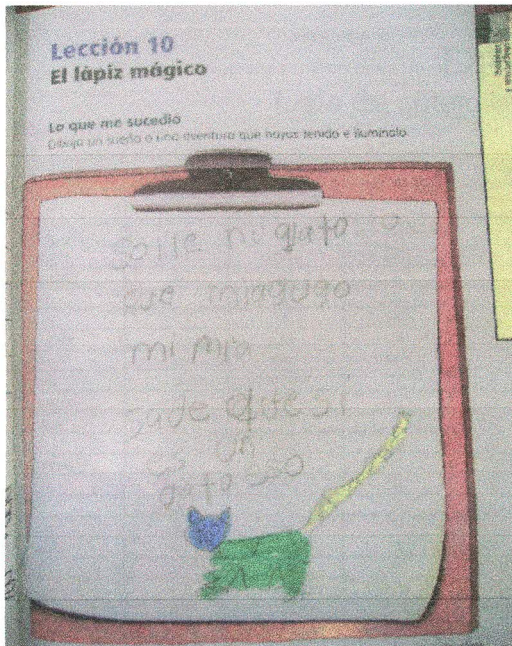 Lección 10
El lápiz mágico
Lo que me sucedio
Dibuja un sueño o una aventura que hayas tenido e ilumínalo.
gato
que
mi mia
sade que si
es un
gato eso